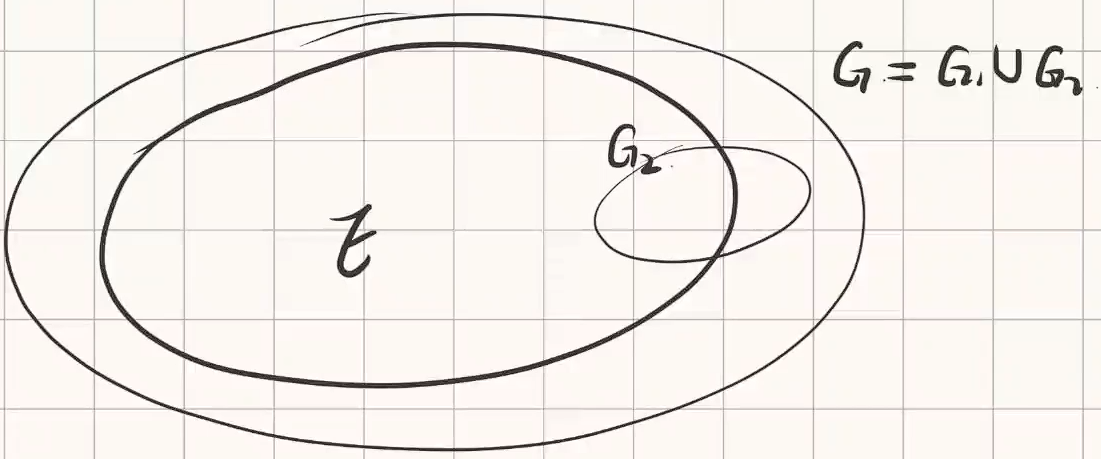 G = G₁ ∪ G₂
G₂
E